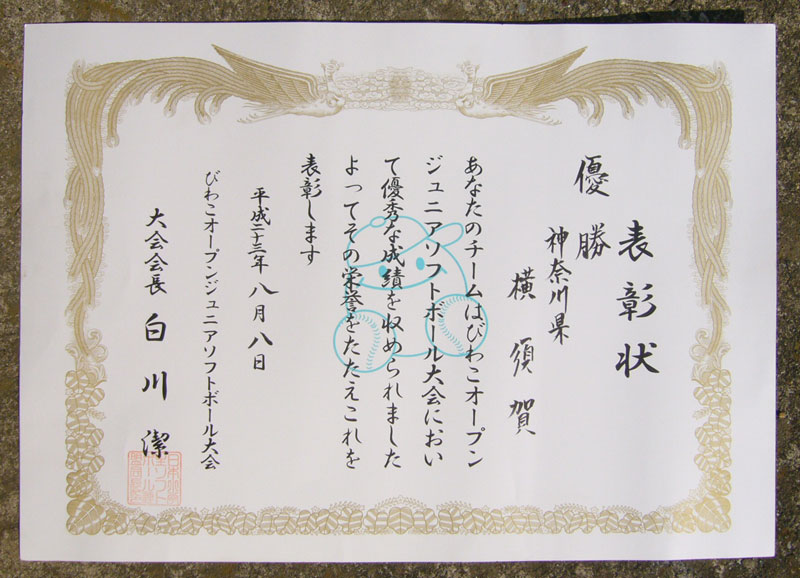 表彰状
優勝
神奈川県
横須賀
あなたのチームはびわこオープン
ジュニアソフトボール大会におい
て優秀な成績を収められました
よってその栄誉をたたえこれを
表彰します
平成二十三年八月八日
びわこオープンジュニアソフトボール大会
大会会長 白川 潔